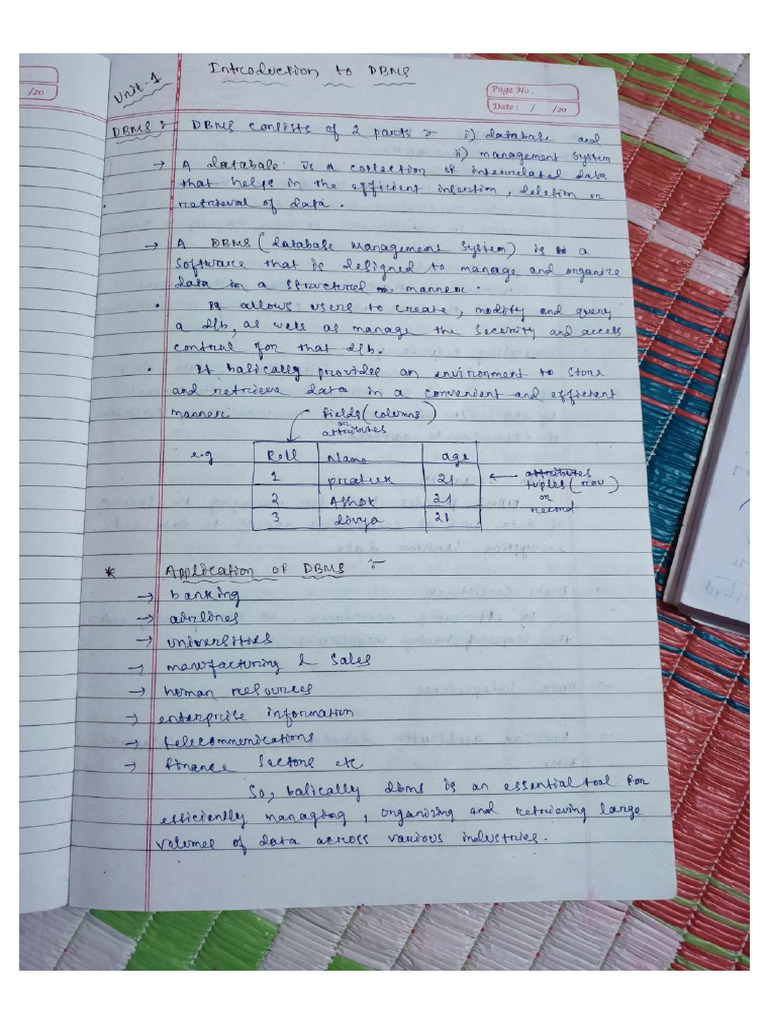 /20
Unit-1
Introduction to DBMS
Page No.
Date: / /20
DBMS :- DBMS consists of 2 parts :- i) database and
ii) management system
→ A database is a collection of interrelated data
that helps in the efficient insertion, deletion or
retrieval of data.
→ A DBMS (database management system) is a
software that is designed to manage and organize
data in a structured manner.
• It allows users to create, modify and query
a d/b, as well as manage the security and access
control for that d/b.
• It basically provides an environment to store
and retrieve data in a convenient and efficient
manner.
fields (columns)
or
attributes
e.g
Roll Name age
1 prateek 21
2 Ashok 21
3 divya 21
attributes
tuples (row)
or
record
* Application of DBMS :-
→ banking
→ airlines
→ universities
→ manufacturing & sales
→ human resources
→ enterprise information
→ telecommunications
→ finance sectors etc
So, basically dbms is an essential tool for
efficiently managing, organizing and retrieving large
volumes of data across various industries.